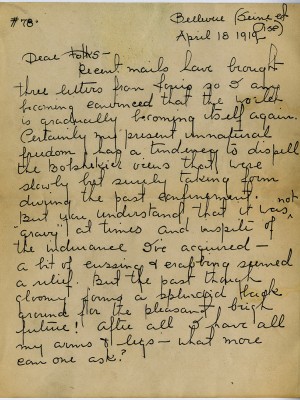 #78.
Bellevue (Seine et
Oise)
April 18 1919
Dear Folks -
Recent mails have brought
three letters from so I am
becoming convinced that the world
is gradually becoming itself again.
Certainly my present unnatural
freedom has a tendency to dispell
the Bolshevik views that were
slowly but surely taking form
during the past confinement.
But you understand that it was not
"gravy" at times and in spite of
the endurance I've acquired -
a bit of cussing & crabbing seemed
a relief. But the past though
gloomy forms a splendid back
ground for the pleasant, brigh
future! After all I have all
my arms & legs - what more
can one ask?